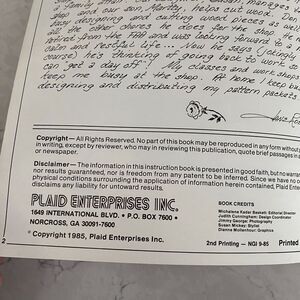 a family affair.
shop and our son, Marty, helps cut wood. Don
busy designing and cutting wood pieces as well
all the other chores he does for the shop. He
retired from the FAA and was looking forward to a
calm and restful life... Now he says (jokingly
course) he's thinking of going back to work so
can "get a day off"! My classes and work shops
keep me busy at the shop. At home I keep busy
designing and distributing my pattern packets
Copyright—All Rights Reserved. No part of this book may be reproduced in any form without p
in writing, except by reviewer, who may in reviewing this publication, quote brief passages in
or newspaper.
Disclaimer—The information in this instruction book is presented in good faith, but no warran
nor results guaranteed, nor is freedom from any patent to be inferred. Since we have no c
physical conditions surrounding the application of information herein contained, Plaid Enter
disclaims any liability for untoward results.
PLAID ENTERPRISES INC.
1649 INTERNATIONAL BLVD. • P.O. BOX 7600 •
NORCROSS, GA 30091-7600
Copyright 1985, Plaid Enterprises Inc.
BOOK CREDITS
Michalena Kadar Baskett: Editorial Director
Judith Cunningham: Design Coordinator
Jimmy George: Photography
Susan Mickey: Stylist
Dianne Mollenhour: Graphics
2
2nd Printing — NGI 9-85
Printed